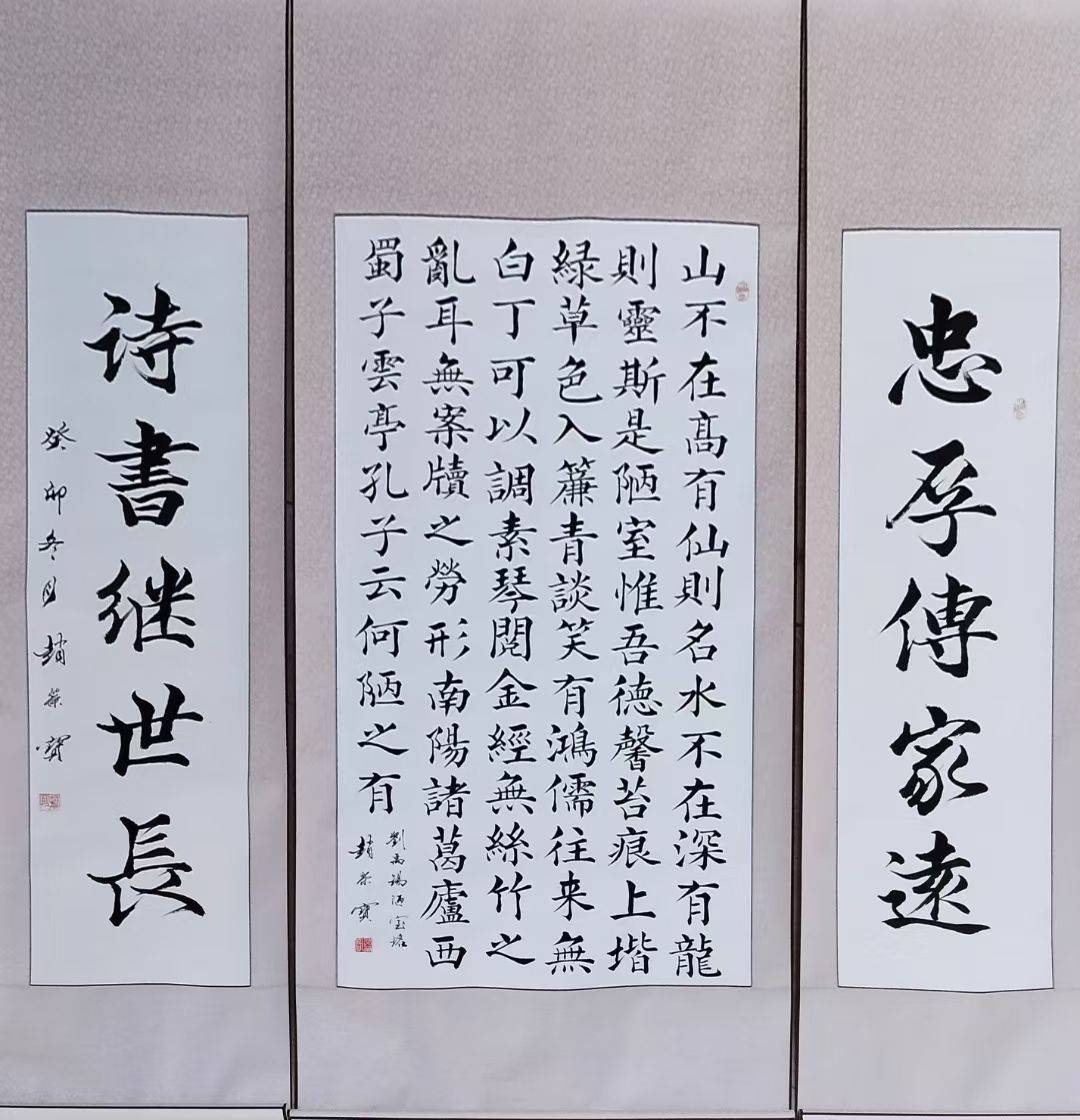 忠孝傳家遠
山不在髙有仙則名水不在深有龍
則靈斯是陋室惟吾德馨苔痕上堦
緑草色入簾青談笑有鴻儒往来無
白丁可以調素琴閲金經無絲竹之
亂耳無案牘之勞形南陽諸葛廬西
蜀子雲亭孔子云何陋之有
劉禹錫陋室銘
趙荣寶
诗書继世長
癸卯冬月趙荣寶